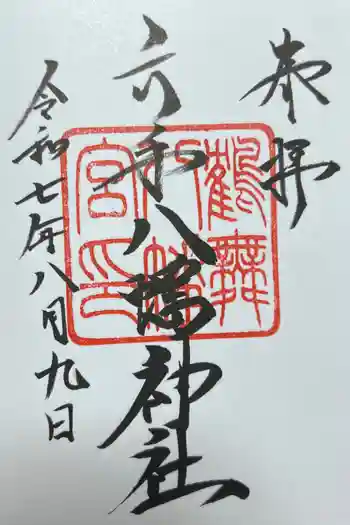 奉拝
六和八幡神社
令和七年八月九日
鶴舞
八幡
宮印